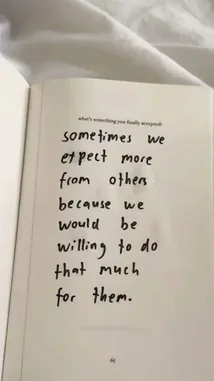 what's something you finally accepted?
sometimes we
expect more
from others
because we
would be
willing to do
that much
for them.